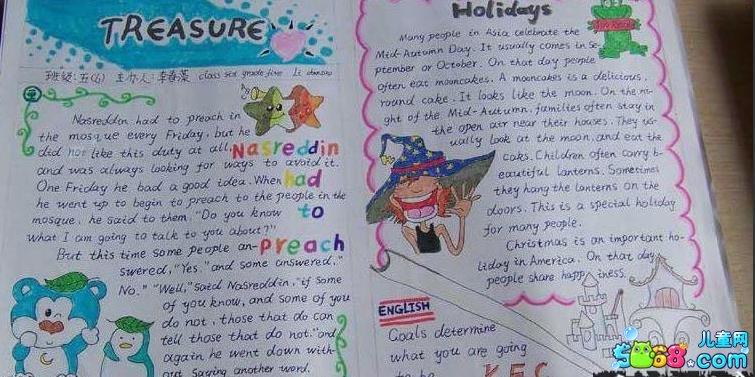 TREASURE
班级：五(6) 主办人：李春蕖 class six grade five Li
Nasreddin had to preach in
the mosque every Friday, but he
did not like this duty at all. Nasreddin
and was always looking for ways to avoid it.
One Friday he bad a good idea. When had
he went up to begin to preach to the people in the
mosque, he said to them, "Do you know to
What I am going to talk to you about?"
But this time some people an- preach
swered, "Yes," and some answered,"
No." "Well," said Nasreddin, "if some
of you know, and some of you
do not, those that do can
tell those that do not." and
again he went down with-
out saying another word.
Holidays
Many people in Asia celebrate the
Mid-Autumn Day. It usually comes in Se-
ptember or October. On that day people
often eat mooncakes. A mooncakes is a delicious,
round cake. It looks like the moon. On the ni-
ght of the Mid-Autumn, families often stay in
the open air near their houses. They us-
ually look at the moon, and eat the
caks. Children often carry b-
eautiful lanterns. Sometimes
they hang the lanterns on the
doors. This is a special holiday
for many people.
Christmas is an important ho-
liday in America. On that day
people share happiness.
ENGLISH
Goals determine
what you are going
to be
KFC
儿童网
5068.com